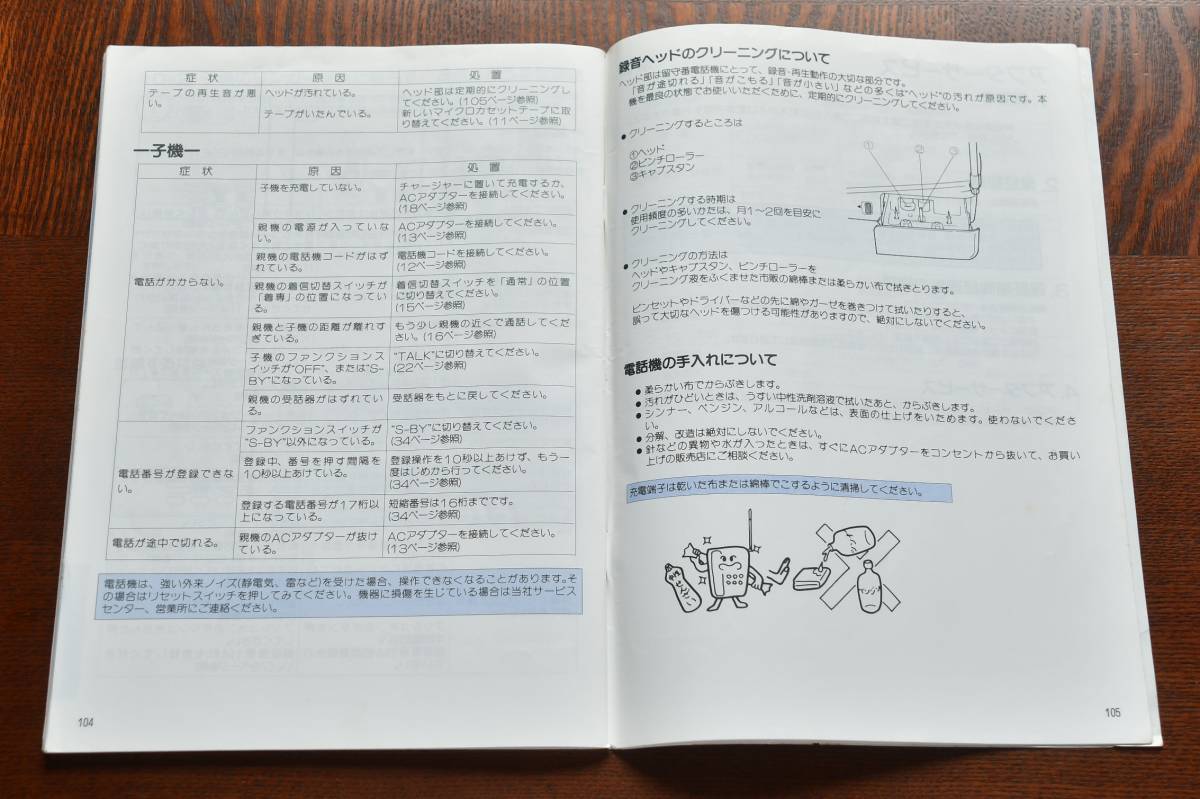 症 状 原 因 処 置
テープの再生音が悪い。
ヘッドが汚れている。
ヘッド部は定期的にクリーニングしてください。(105ページ参照)
テープがいたんでいる。
新しいマイクロカセットテープに取り替えてください。(11ページ参照)
ー子機ー
症 状 原 因 処 置
電話がかからない。
子機を充電していない。
チャージャーに置いて充電するか、
ACアダプターを接続してください。
(18ページ参照)
親機の電源が入っていな
い。
ACアダプターを接続してください。
(13ページ参照)
親機の電話機コードがはず
れている。
電話機コードを接続してください。
(12ページ参照)
親機の着信切替スイッチが
「着専」の位置になってい
る。
着信切替スイッチを「通常」の位置
に切り替えてください。
(15ページ参照)
親機と子機の距離が離れす
ぎている。
もう少し親機の近くで通話してくだ
さい。(16ページ参照)
子機のファンクションス
イッチが"OFF"、または"S-
BY"になっている。
"TALK"に切り替えてください。
(22ページ参照)
親機の受話器がはずれてい
る。
受話器をもとに戻してください。
電話番号が登録できな
い。
ファンクションスイッチが
"S-BY"以外になっている。
"S-BY"に切り替えてください。
(34ページ参照)
登録中、番号を押す間隔を
10秒以上あけている。
登録操作を10秒以上あけず、もう一
度はじめから行ってください。
(34ページ参照)
登録する電話番号が17桁以
上になっている。
短縮番号は16桁までです。
(34ページ参照)
電話が途中で切れる。
親機のACアダプターが抜け
ている。
ACアダプターを接続してください。
(13ページ参照)
電話機は、強い外来ノイズ(静電気、雷など)を受けた場合、操作できなくなることがあります。そ
の場合はリセットスイッチを押してみてください。機器に損傷を生じている場合は当社サービス
センター、営業所にご連絡ください。
104
録音ヘッドのクリーニングについて
ヘッド部は留守番電話機にとって、録音・再生動作の大切な部分です。
「音が途切れる」「音がこもる」「音が小さい」などの多くは"ヘッド"の汚れが原因です。本
機を最良の状態でお使いいただくために、定期的にクリーニングしてください。
● クリーニングするところは
①ヘッド
②ピンチローラー
③キャプスタン
① ② ③
● クリーニングする時期は
使用頻度の多いかたは、月1〜2回を目安に
クリーニングしてください。
● クリーニングの方法は
ヘッドやキャプスタン、ピンチローラーを
クリーニング液をふくませた市販の綿棒または柔らかい布で拭きとります。
ピンセットやドライバーなどの先に綿やガーゼを巻きつけて拭いたりすると、
誤って大切なヘッドを傷つける可能性がありますので、絶対にしないでください。
電話機の手入れについて
● 柔らかい布でからぶきします。
● 汚れがひどいときは、うすい中性洗剤溶液で拭いたあと、からぶきします。
● シンナー、ベンジン、アルコールなどは、表面の仕上げをいためます。使わないでくださ
い。
● 分解、改造は絶対にしないでください。
● 針などの異物や水が入ったときは、すぐにACアダプターをコンセントから抜いて、お買い
上げの販売店にご相談ください。
充電端子は乾いた布または綿棒でこするように清掃してください。
ベンジン
105